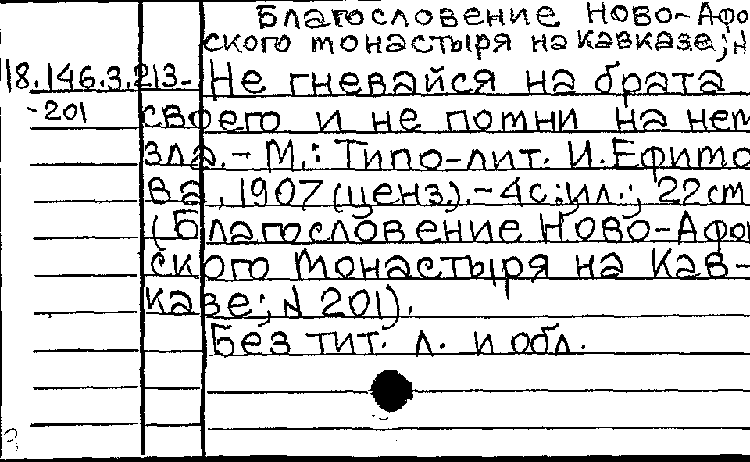 Благословение Ново-Афо
ского монастыря на Кавказе; N
18.146.3.213- Не гневайся на брата
-201 своего и не помни на нем
зла. - М.: Типо-лит. И. Ефимо
ва, 1907 (ценз.). - 4с.: ил.; 22см
(Благословение Ново-Афон
ского монастыря на Кав-
казе; N 201).
Без тит. л. и обл.